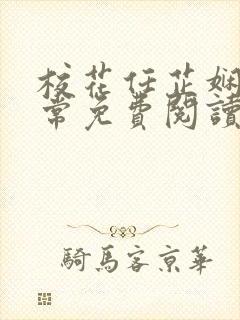 校花任芷娴
常免費閱讀
騎馬客京華